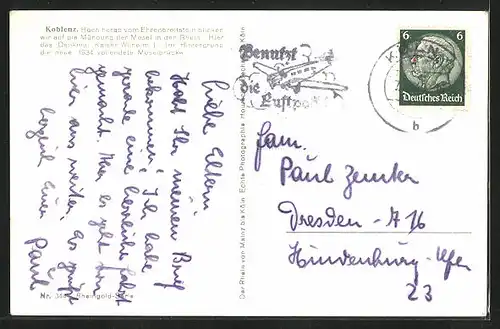 Koblenz. Hoch herab vom Ehrenbreitstein blicken
wir auf die Mündung der Mosel in den Rhein. Hier
das Denkmal Kaiser Wilhelm I. Im Hintergrund
die neue 1934 vollendete Moselbrücke
Liebe Eltern!
Habt Ihr meinen Brief
bekommen? Ich habe
gerade eine herrliche Fahrt
gemacht. Nun es geht von
hier aus weiter. Es grüßt
herzlich Euer
Paul
Nr. Rheingold-Serie
Der Rhein von Mainz bis Köln. Echte Photographie.
Benutzt
die
Luftpost
K
b
6 6
Deutsches Reich
Fam.
Paul Zemker
Dresden - A 16
Hindenburg-Ufer
23